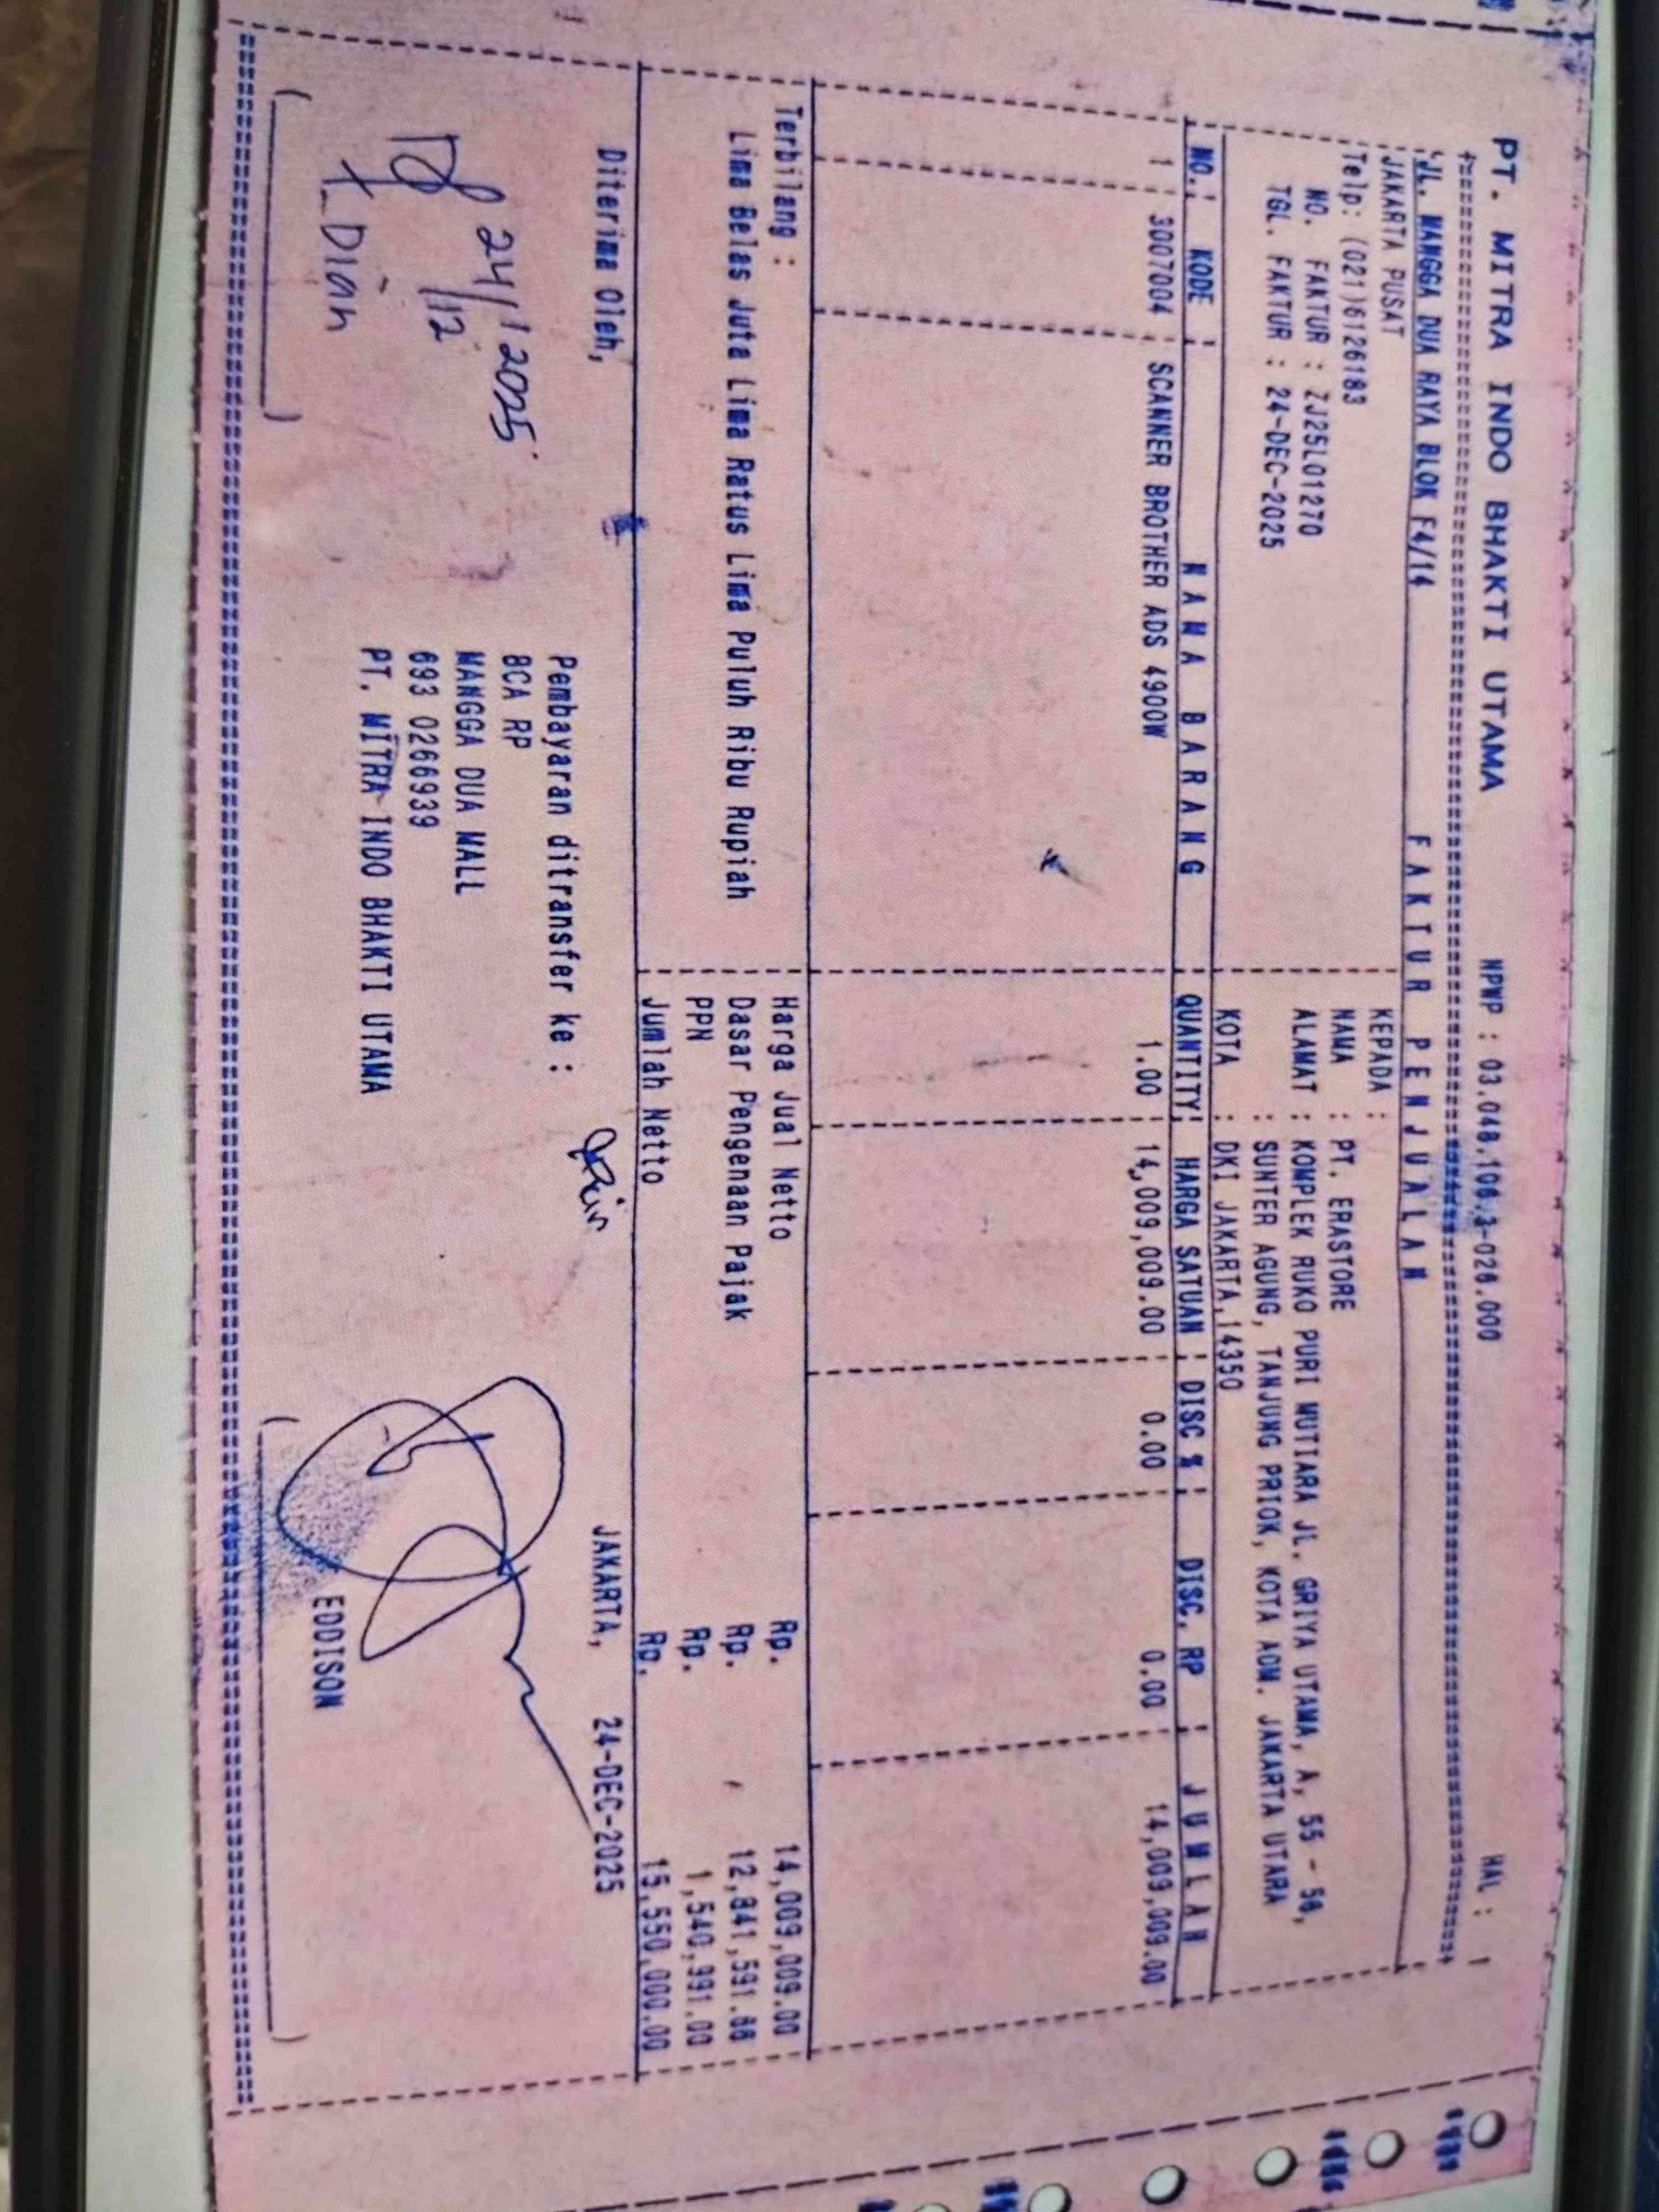 PT. MITRA INDO BHAKTI UTAMA NPWP : 03.048.106.3-026.000 HAL : 1
JL. MANGGA DUA RAYA BLOK F4/14 FAKTUR PENJUALAN
JAKARTA PUSAT KEPADA :
Telp: (021)6126183 NAMA : PT. ERASTORE
NO. FAKTUR : ZJ25L01270 ALAMAT : KOMPLEK RUKO PURI MUTIARA JL. GRIYA UTAMA, A, 55 - 56,
TGL. FAKTUR : 24-DEC-2025 : SUNTER AGUNG, TANJUNG PRIOK, KOTA ADM. JAKARTA UTARA
KOTA : DKI JAKARTA,14350
NO. KODE NAMA BARANG QUANTITY HARGA SATUAN DISC % DISC. RP JUMLAH
1 3007004 SCANNER BROTHER ADS 4900W 1.00 14,009,009.00 0.00 0.00 14,009,009.00
Terbilang : Harga Jual Netto Rp. 14,009,009.00
Lima Belas Juta Lima Ratus Lima Puluh Ribu Rupiah Dasar Pengenaan Pajak Rp. 12,841,591.
PPN Rp. 1,540,991.00
Jumlah Netto Rp. 15,550,000.00
Diterima Oleh, JAKARTA, 24-DEC-2025
Pembayaran ditransfer ke :
BCA RP
MANGGA DUA MALL
693 0266939
PT. MITRA INDO BHAKTI UTAMA
24/12025
/12
Dian
EDDISON